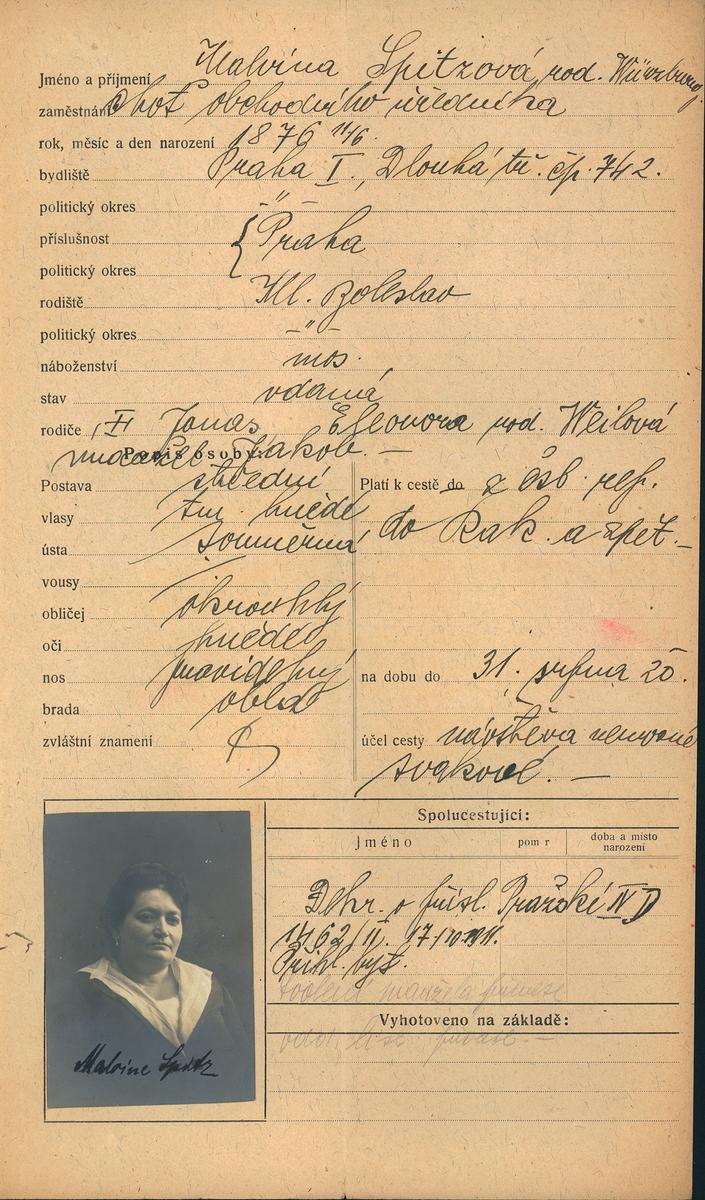 Jméno a příjmení Malvina Spitzová, rod. Würzburg
zaměstnání choť obchodního úředníka
rok, měsíc a den narození 1876 11/6
bydliště Praha I., Dlouhá tř. čp. 742.
politický okres -"-
příslušnost { Praha
politický okres
rodiště Ml. Boleslav
politický okres -"-
náboženství mos.
stav vdaná
rodiče Jonas, Eleonora rod. Weilová
manžel Jakob. —
Popis osoby:
Postava střední
vlasy tm. hnědé
ústa souměrná
vousy —
obličej okrouhlý
oči hnědé
nos pravidelný
brada oblá
zvláštní znamení
Platí k cestě do z čsl. rep.
do Rak. a zpět. —
na dobu do 31. srpna 20.
účel cesty návštěva nemocné
švakrové. —
Spolucestující:
Jméno pom r doba a místo narození
Dekr. o přísl. Pražské IV D
1462/II. 17/10
Přihl. byt.
Vyhotoveno na základě:
Malvine Spitz